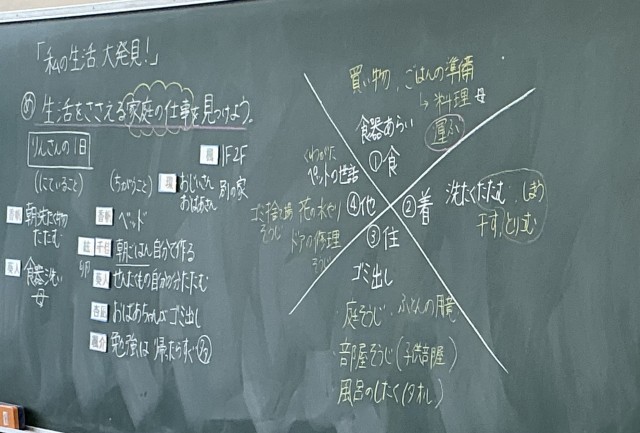 「私の生活 大発見!」
め 生活をささえる家庭の仕事を見つけよう。
りんさんの1日
1F2F
(にていること)
(ちがうこと)
おじいさん
おばあさん
別の家
朝 洗たく物
たたむ
食器洗い
母
ベッド
朝ごはん自分で作る
せんたくもの自分の分たたむ
おばあちゃんがゴミ出し
勉強は帰ったらすぐ
買い物、ごはんの準備
↳ 料理 母
食器あらい
運ぶ
①食
くわがた
ペットの世話
④他
花の水やり
ゴミ捨て場
そうじ
ドアの修理
②着
洗たくたたむ、しまう
干す、とりこむ
③住
ゴミ出し
庭そうじ、ふとんの用意
部屋そうじ(子供部屋)
風呂のしたく(タオル)